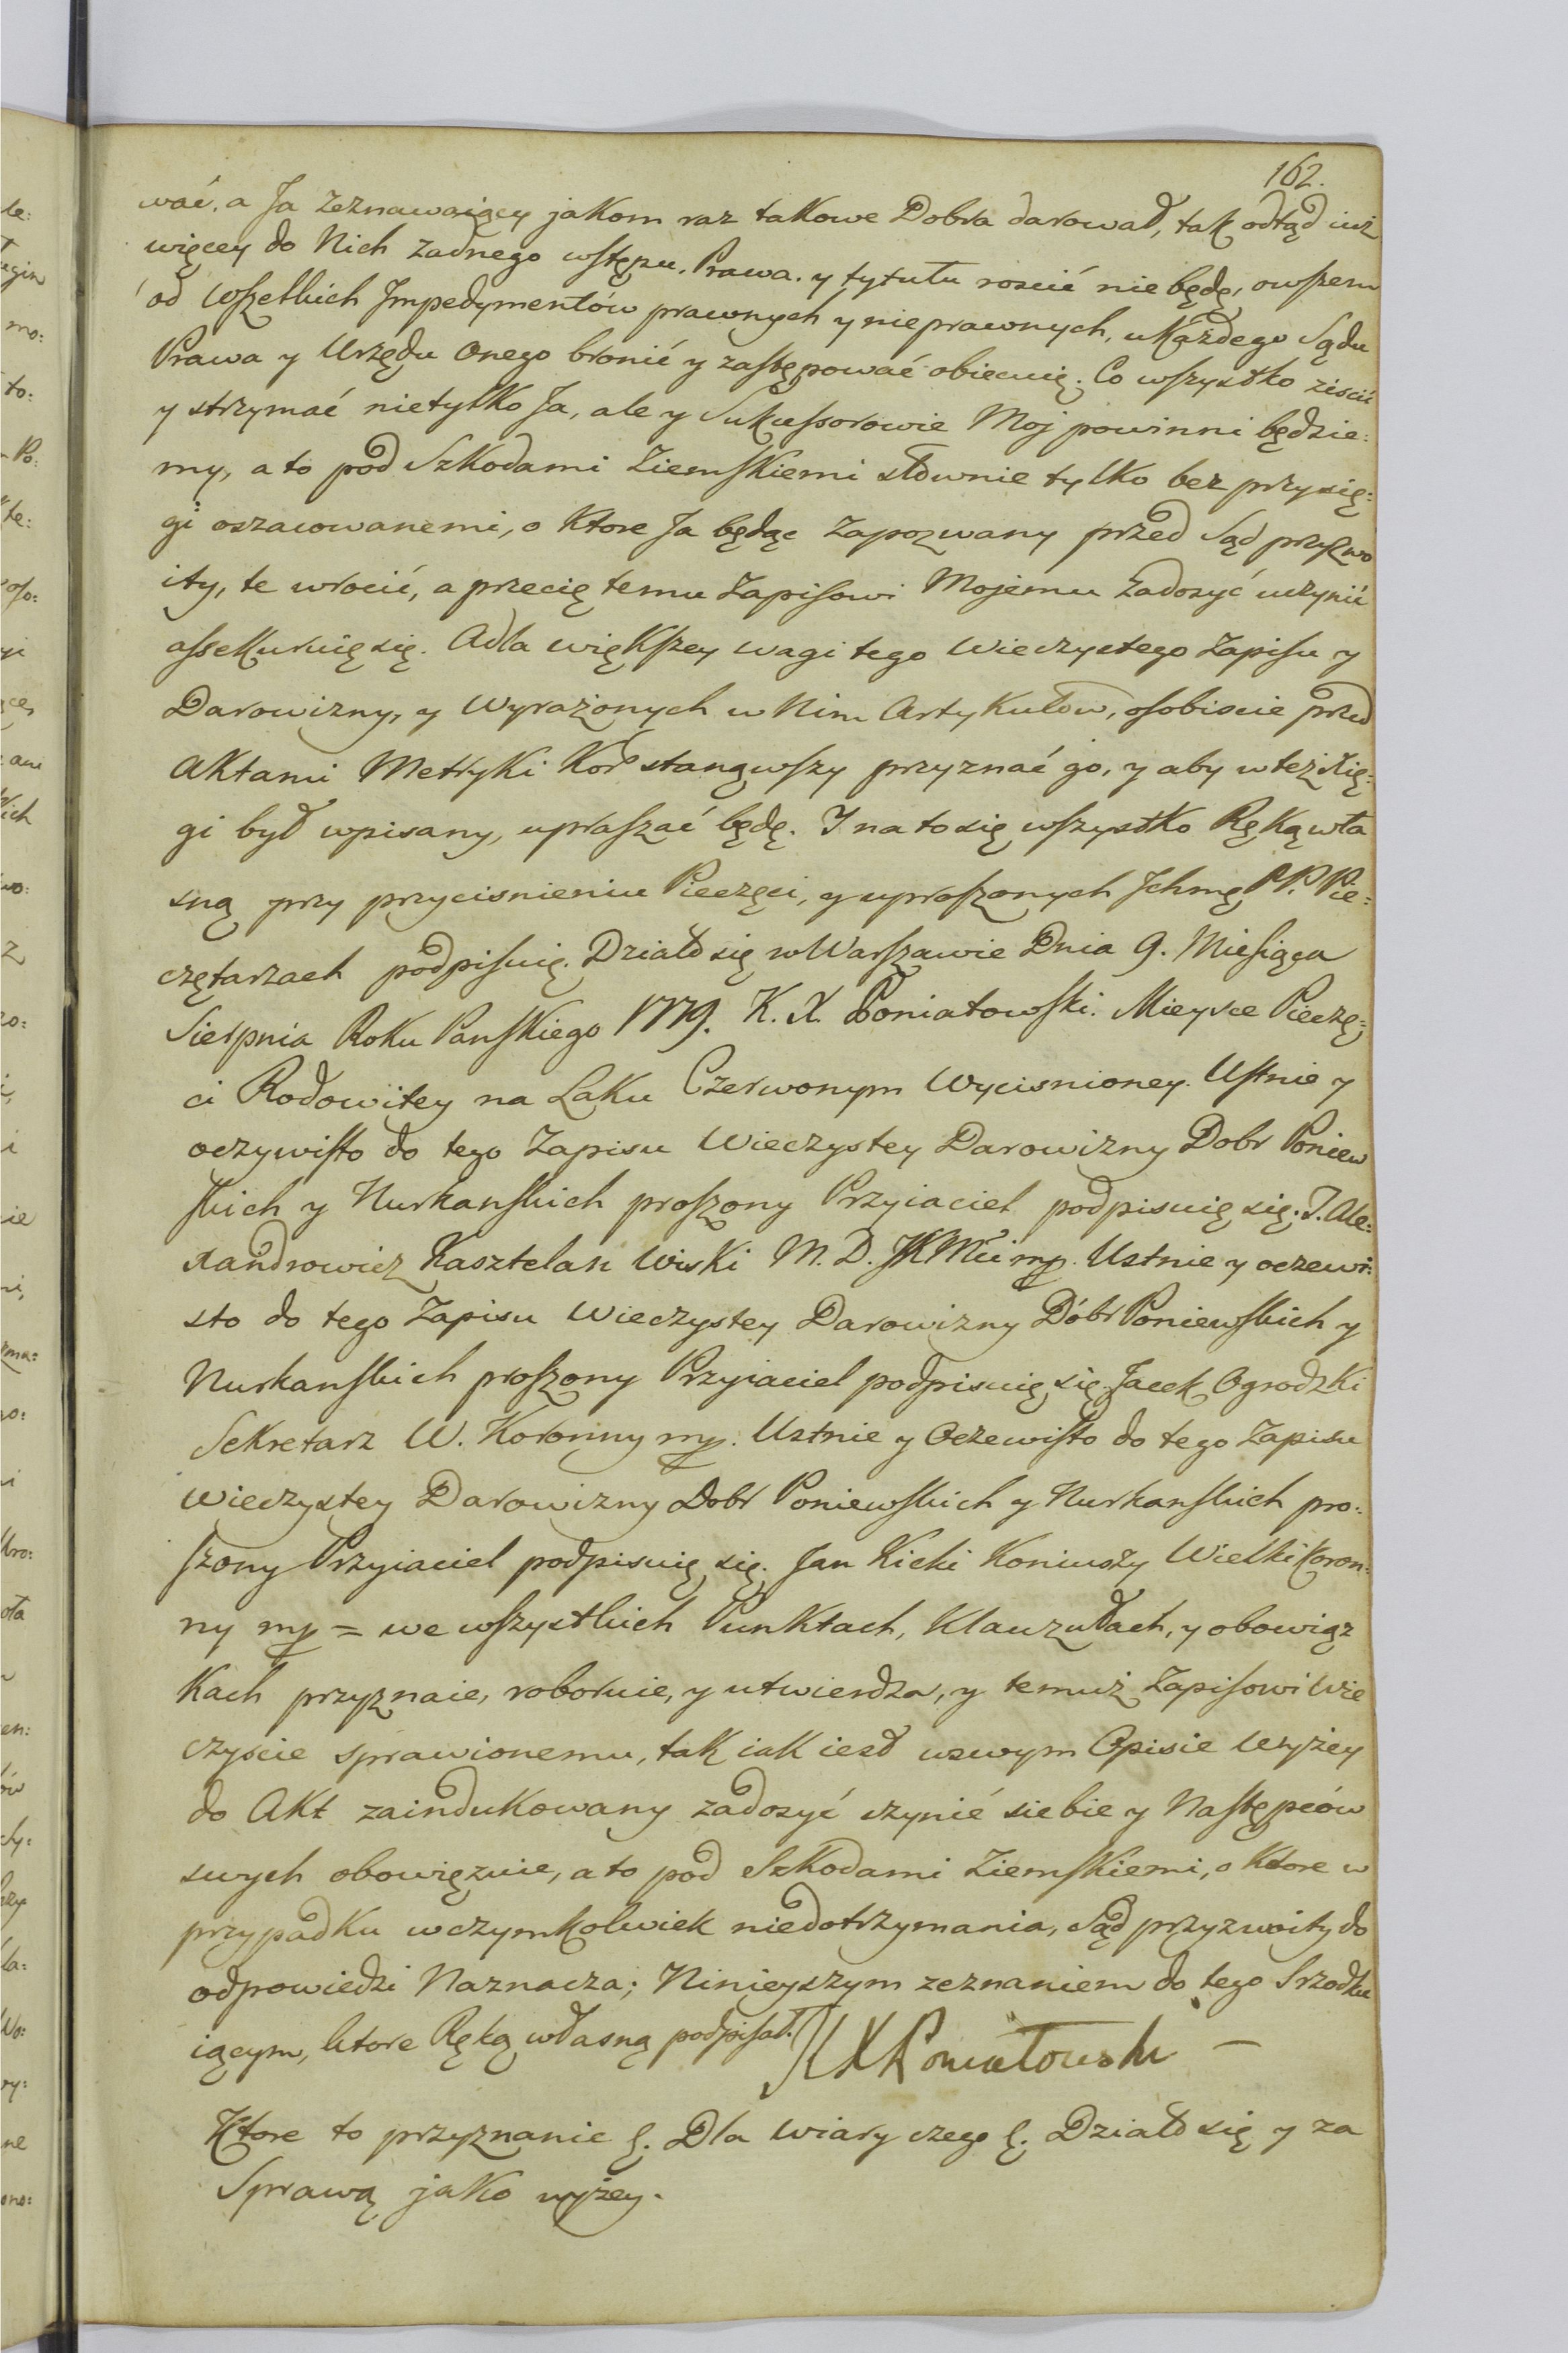 162.
wać, a Ja zeznawaiący jakom raz takowe Dobra darował, tak odtąd iuż
więcey do Nich żadnego wstępu, Prawa, y tytułu rościć nie będę, owszem
od wszelkich Impedymentów prawnych y nieprawnych, u Każdego Sądu
Prawa y Urzędu onego bronić y zastępować obiecuię. Co wszystko ziścić
y strzymać nietylko Ja, ale y Sukcessorowie Moj powinni będzie:
my, a to pod Szkodami Ziemskiemi słownie tylko bez przysię:
gi oszacowanemi, o Ktore Ja będąc zapozwany przed Sąd przyzwo
ity, te wrocić, a przecię temu Zapisowi Mojemu zadosyć uczynić
assekuruię się. A dla większey wagi tego Wieczystego Zapisu y
Darowizny, y Wyrażonych w Nim Artykułow, osobiscie przed
Aktami Metryki Kor stanąwszy przyznać go, y aby w też Xię:
gi był wpisany, upraszać będę. I na to się wszystko Ręką wła
sną przy przycisnieniu Pieczęci, y uproszonych Ichmę PP. Pie:
czętarzach podpisuię. Działo się w Warszawie Dnia 9. Miesiąca
Sierpnia Roku Panskiego 1779. K. X. Poniatowski. Mieysce Pieczę:
ci Rodowitey na Laku Czerwonym Wycisnioney. Ustnie y
oczywisto do tego Zapisu Wieczystey Darowizny Dobr Poniew
skich y Nurkanskich proszony Przyiaciel podpisuię się. T. Ale:
xandrowicz Kasztelan Wiski M. D. JKMci mp. Ustnie y oczewi:
sto do tego Zapisu Wieczystey Darowizny Dóbr Poniewskich y
Nurkanskich proszony Przyiaciel podpisuię się Jacek Ogrodzki
Sekretarz W. Koronny mp. Ustnie y Oczewisto do tego Zapisu
Wieczystey Darowizny Dobr Poniewskich y Nurkanskich pro:
szony Przyiaciel podpisuię się. Jan Kicki Koniuszy Wielki Koron:
ny mp = we wszystkich Punktach, Klauzułach, y obowiąz
kach przyznaie, roboruie, y utwierdza, y temuż Zapisowi Wie
czyscie sprawionemu, tak iak iest w swym Opisie wyżey
do Akt zaindukowany zadosyć czynić siebie y Następców
swych obowięzuie, a to pod Szkodami Ziemskiemi, o Ktore w
przypadku w czymkolwiek niedotrzymania, Sąd przyzwoity do
odpowiedzi Naznacza; Ninieyszym zeznaniem do tego Srzodku
iącym, ktore Ręką własną podpisał. K X Poniatowski –
Ktore to przyznanie &. Dla wiary czego &. Działo się y za
Sprawą jako wyżey.